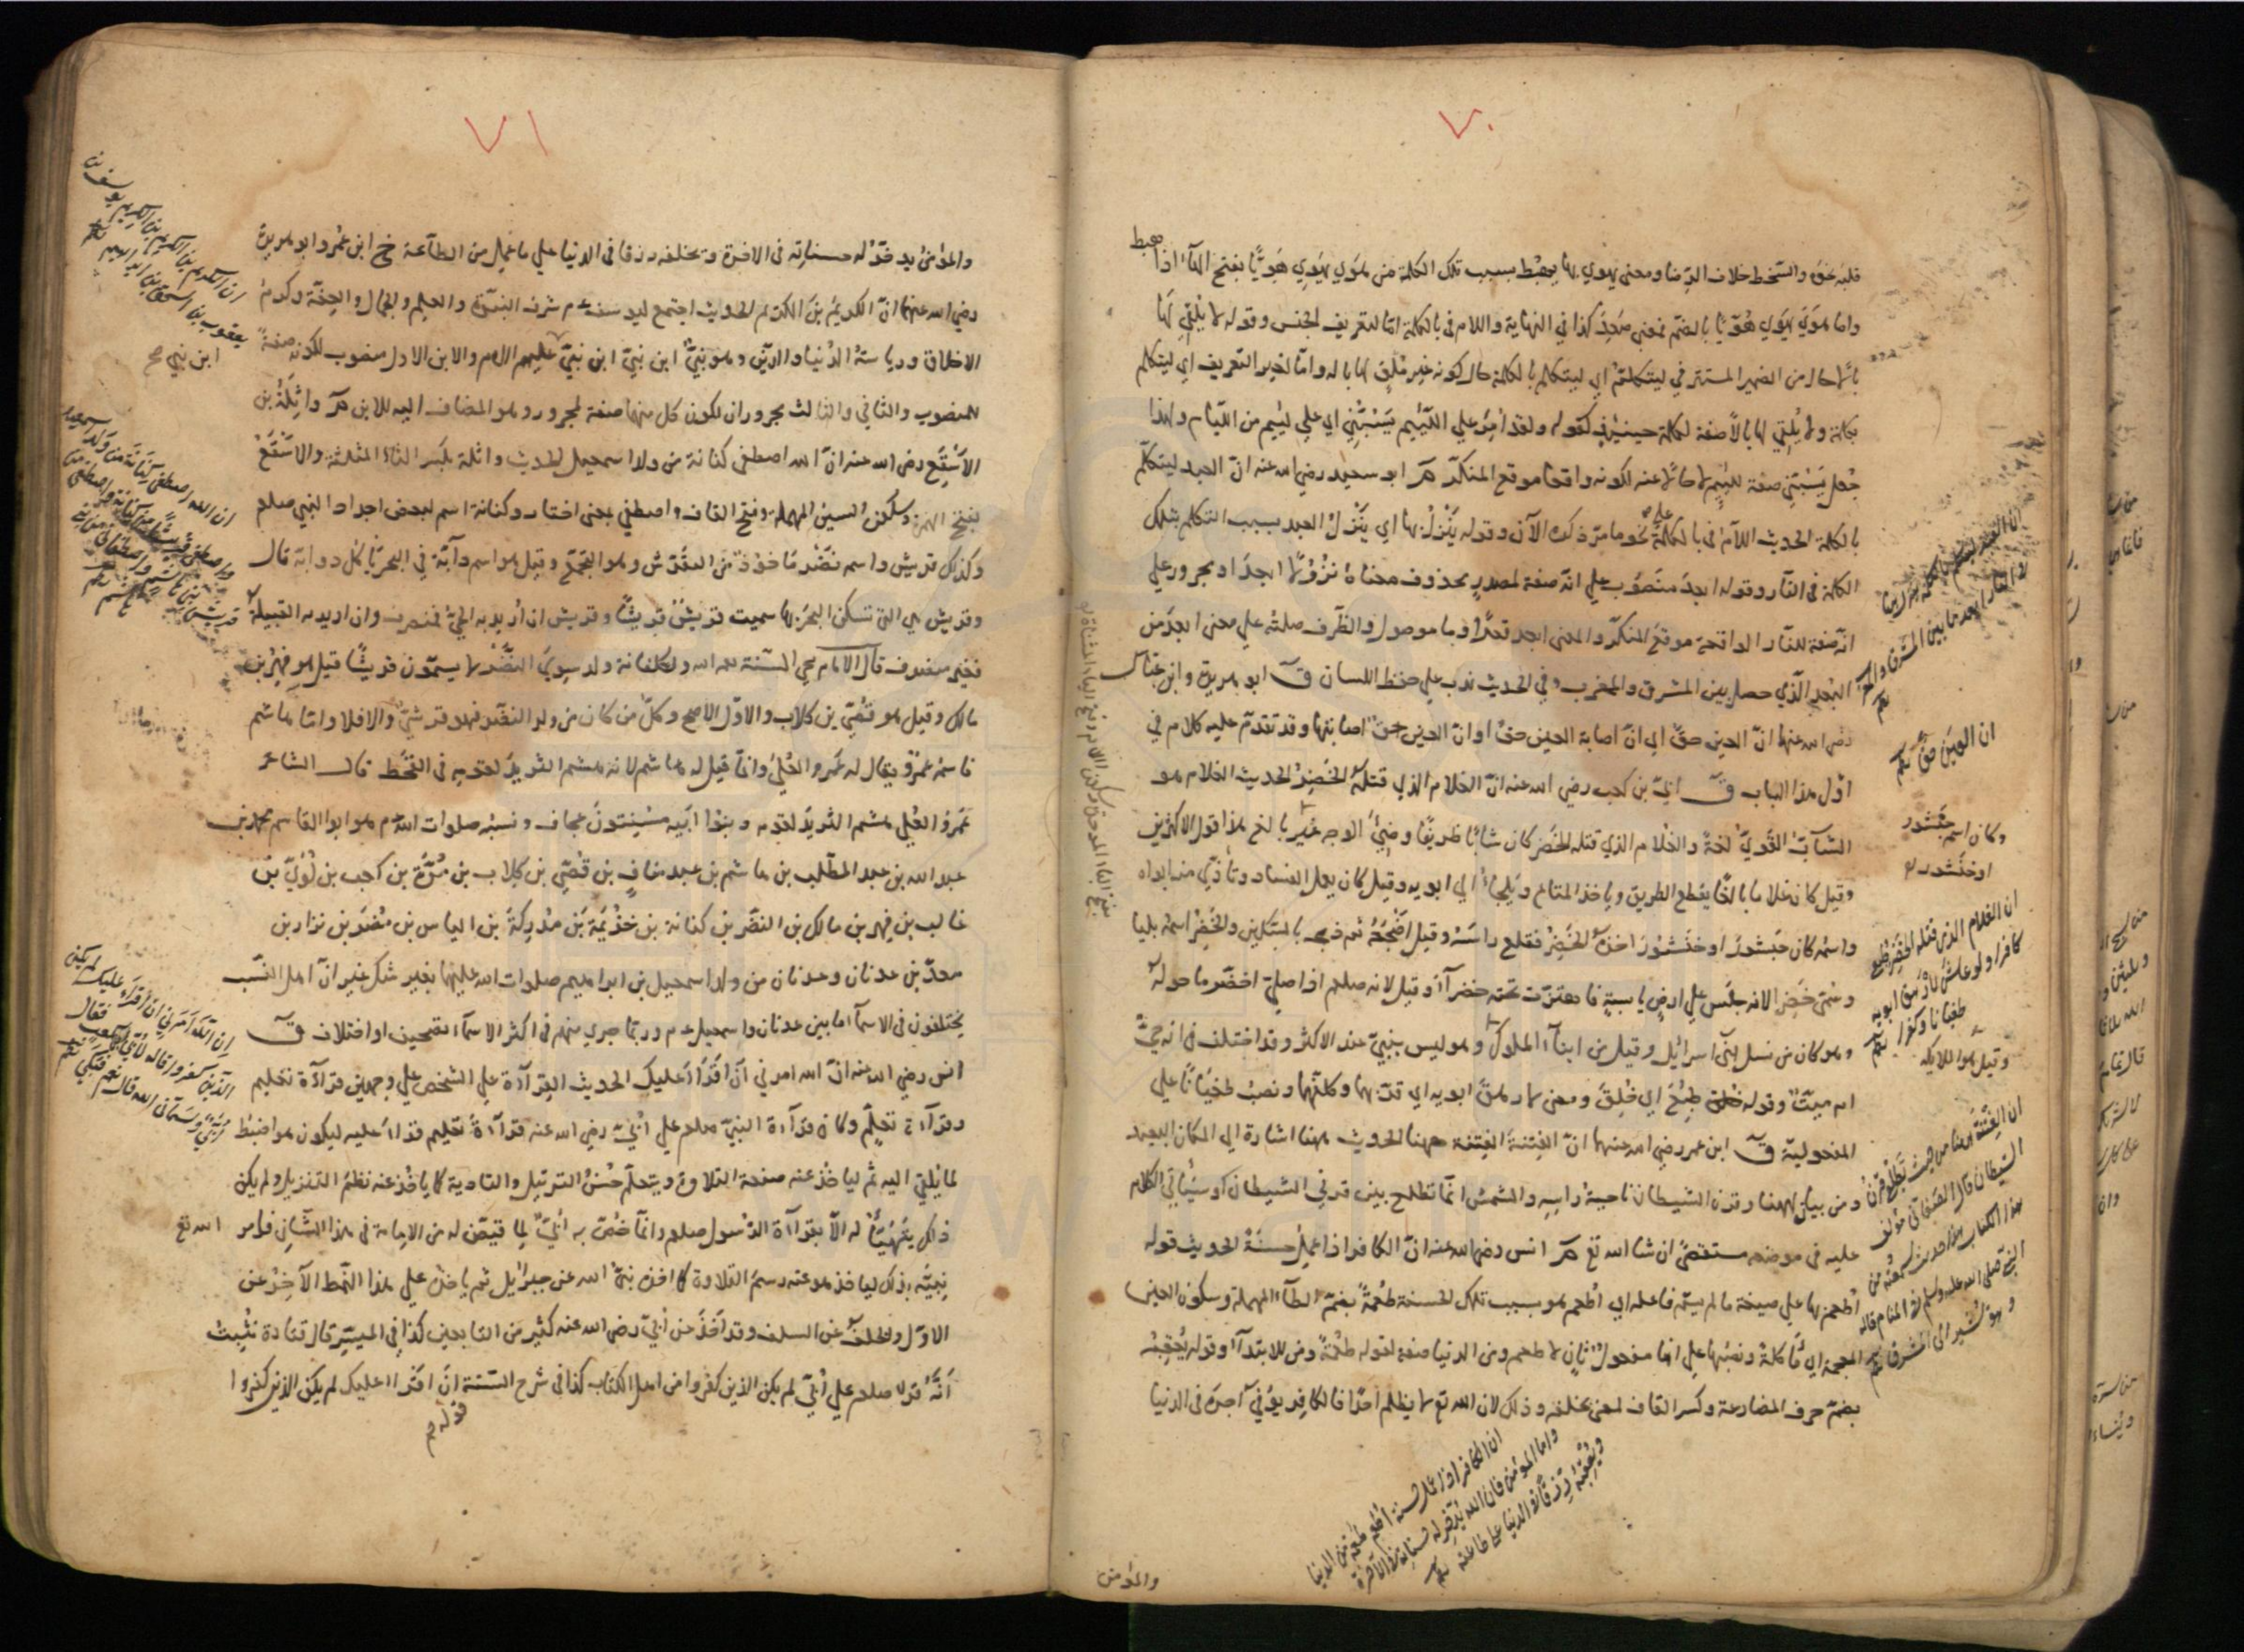 ٧٠
قلبه عنق والسخط خلاف الرضا ومعنى يهوي بها يهبط بسبب تلك الكلمة من هوي يهوي هويا بفتح الهاء اذا هبط
واما هوي يهوي هويا بالضم فمعنى صعد كذا في النهاية واللام في بالكلمة اما لتعريف الجنس وقوله لا يلقي لها
بالا حال من الضمير المستتر في ليتكلم اي ليتكلم بالكلمة حال كونه غير ملق لها باله واما لغير التعريف اي ليتكلم
بكلمة ولا يلقي لها بالا صفة لكلمة حينئذ كقوله ولقد امر علي اللئيم يسبني اي علي لئيم من اللئام ولهذا
جعل يسبني صفة للئيم لا حالا عنه لكونه واقعا موقع المنكر ابو سعيد رضي الله عنه ان العبد ليتكلم
بالكلمة الحديث اللام في بالكلمة علي نحو ما مر ذكره الآن وقوله ينزل بها اي ينزل العبد بسبب التكلم بتلك
الكلمة في النار وقوله ابعد منصوب علي انه صفة لمصدر محذوف معناه نزولا ابعد او مجرور علي
انه صفة للنار الواقعة موقع المنكر والمعنى ابعد قعرا وما موصول والظرف صلته علي معنى ابعد من
البعد الذي حصل بين المشرق والمغرب وفي الحديث ندب علي حفظ اللسان ق ابو هريرة وابن عباس
رضي الله عنهما ان العين حق اي ان اصابة العين حق او ان العين حق اصابتها وقد تقدم عليه كلام في
اول هذا الباب ق ابي بن كعب رضي الله عنه ان الغلام الذي قتله الخضر الحديث الغلام هو
الشاب القوي لغة والغلام الذي قتله الخضر كان شابا ظريفا وضيء الوجه غير بالغ هذا قول الاكثرين
وقيل كان غلاما بالغا يقطع الطريق وياخذ المتاع ويلجا الي ابويه وقيل كان يعمل الفساد وتأذي منه ابواه
واسمه كان جيشور او خنشور اخذه الخضر فقلع راسه وقيل اضجعه ثم ذبحه بالسكين والخضر اسمه بليا
وسمي خضرا لانه جلس علي ارض يابسة فاهتزت تحته خضراء وقيل لانه صلعم اذا صلي اخضر ما حوله
وهو كان من نسل بني اسرائيل وقيل من ابناء الملوك وهو ليس بنبي عند الاكثر وقد اختلف في انه حي
ام ميت وقوله طبع اي خلق ومعنى ارهق ابويه اي قربهما وكلفهما ونصب طغيانا علي
المفعولية ق ابن عمر رضي الله عنهما ان الفتنة الفتنة ههنا الحديث ههنا اشارة الي المكان البعيد
ومن بيان لههنا وقرن الشيطان ناحية راسه والشمس انما تطلع بين قرني الشيطان وسيأتي الكلام
عليه في موضعه مستقصى ان شا الله تع انس رضي الله عنه ان الكافر اذا عمل حسنة الحديث قوله
اطعم بها علي صيغة ما لم يسم فاعله اي اطعم هو بسبب تلك الحسنة طعمة بضم الطاء المهملة وسكون العين
المهملة اي مأكلة ونصبها علي انها مفعول ثان لاطعم ومن الدنيا صفة لقوله طعمة ومن للابتداء وقوله يعقبه
بضم حرف المضارعة وكسر القاف لمعنى يخلفه وذلك لان الله تع لا يظلم احدا فالكافر يوفي آجره في الدنيا
ان العين حق
وكان اسمه جيشور
او خنشور
ان الغلام الذي قتله الخضر طبع
كافرا ولو عاش لارهق ابويه
طغيانا وكفرا
ان الفتنة ههنا من حيث تطلع قرن
الشيطان قال الصغاني مؤلف
هذا الكتاب هذا حديث سمعته من
النبي صلي الله عليه وسلم في المنام قاله
وهو يشير الى المشرق
ان الكافر اذا عمل حسنة اطعم طعمة من الدنيا
واما المؤمن فان الله يدخر له حسناته في الآخرة
ويعقبه رزقا في الدنيا علي طاعته
والمؤمن
٧١
والمؤمن يدخر له حسناته في الاخرة ويخلفه رزقا في الدنيا علي ما عمل من الطاعة خ ابن عمر وابو هريرة
رضي الله عنهما ان الكريم بن الكريم الحديث اجتمع ليوسف عم شرف النبوة والعلم والجمال والعفة وكرم
الاخلاق ورياسة الدنيا والدين وهو نبي ابن نبي ابن نبي عليهم السلام والابن الاول منصوب لكونه صفة
للمنصوب والثاني والثالث مجروران لكون كل منهما صفة لمجرور وهو المضاف اليه للابن واثلة بن
الاسقع رضي الله عنه ان الله اصطفي كنانة من ولد اسمعيل الحديث واثلة بكسر الثاء المثلثة والاسقع
بفتح الهمزة وسكون السين المهملة وفتح القاف واصطفي بمعنى اختار وكنانة اسم لبعض اجداد النبي صلعم
وكذلك قريش واسمه نضر ماخوذ من التقرش وهو التجمع وقيل هو اسم دابة في البحر يأكل دوابه قال
وقريش هي التي تسكن البحر بها سميت قريش قريشا وقريش ان اريد به الحي فمنصرف وان اريد به القبيلة
فغير منصرف قال الامام محي السنة رحمه الله ولكنانة ولد سوي النضر لا يسمون قريشا قيل هو فهر بن
مالك وقيل هو قصي بن كلاب والاول الاصح وكل من كان من ولد النضر فهو قرشي والا فلا واما هاشم
فاسمه عمرو يقال له عمرو العلي وانما قيل له هاشم لانه هشم الثريد لقومه في القحط قال الشاعر
عمرو العلي هشم الثريد لقومه وبنوا ابيه مسنتون عجاف ونسبه صلوات الله عم هو ابو القاسم محمد بن
عبد الله بن عبد المطلب بن هاشم بن عبد مناف بن قصي بن كلاب بن مرة بن كعب بن لؤي بن
غالب بن فهر بن مالك بن النضر بن كنانة بن خزيمة بن مدركة بن الياس بن مضر بن نزار بن
معد بن عدنان وعدنان من ولد اسمعيل بن ابراهيم صلوات الله عليهما بغير شك غير ان اهل النسب
يختلفون في الاسماء ما بين عدنان واسمعيل عم وربما جري منهم في اكثر الاسماء تصحيف او اختلاف ق
انس رضي الله عنه ان الله امرني ان اقرأ عليك الحديث القراءة علي الشخص علي وجهين قراءة تعليم
وقراءة تعلم وكان قراءة النبي صلعم علي ابي رضي الله عنه قراءة تعليم قرا عليه ليكون هو اضبط
لما يلقي اليه ثم لياخذ عنه صنعة التلاوة ويتعلم حسن الترتيل والتادية كما ياخذ عنه نظم التنزيل ولم يكن
ذلك يتهيأ له الا بقراءة الرسول صلعم وانما خص به ابي لما قيض له من الامامة في هذا الشأن فامر الله تع
نبيه بذلك لياخذ هو عنه رسم التلاوة كما اخذه نبي الله عن جبرائيل ثم ياخذه علي هذا النمط الآخر عن
الاول والخلف عن السلف وقد اخذ عن ابي رضي الله عنه كثير من التابعين كذا في الميسر قال قتادة نبئت
انه قرا صلعم علي ابي لم يكن الذين كفروا من اهل الكتاب كذا في شرح السنة ان اقرا عليك لم يكن الذين كفروا
قوله
ان الكريم بن الكريم بن الكريم يوسف بن
يعقوب بن اسحق بن ابراهيم
ابن نبي صح
ان الله اصطفي كنانة من ولد اسمعيل
واصطفي قريشا من كنانة واصطفي من
قريش بني هاشم واصطفاني من بني
هاشم
ان الله امرني ان اقراء عليك لم يكن
الذين كفروا قاله لابي بن كعب فقال
وسماني الله قال نعم فبكي